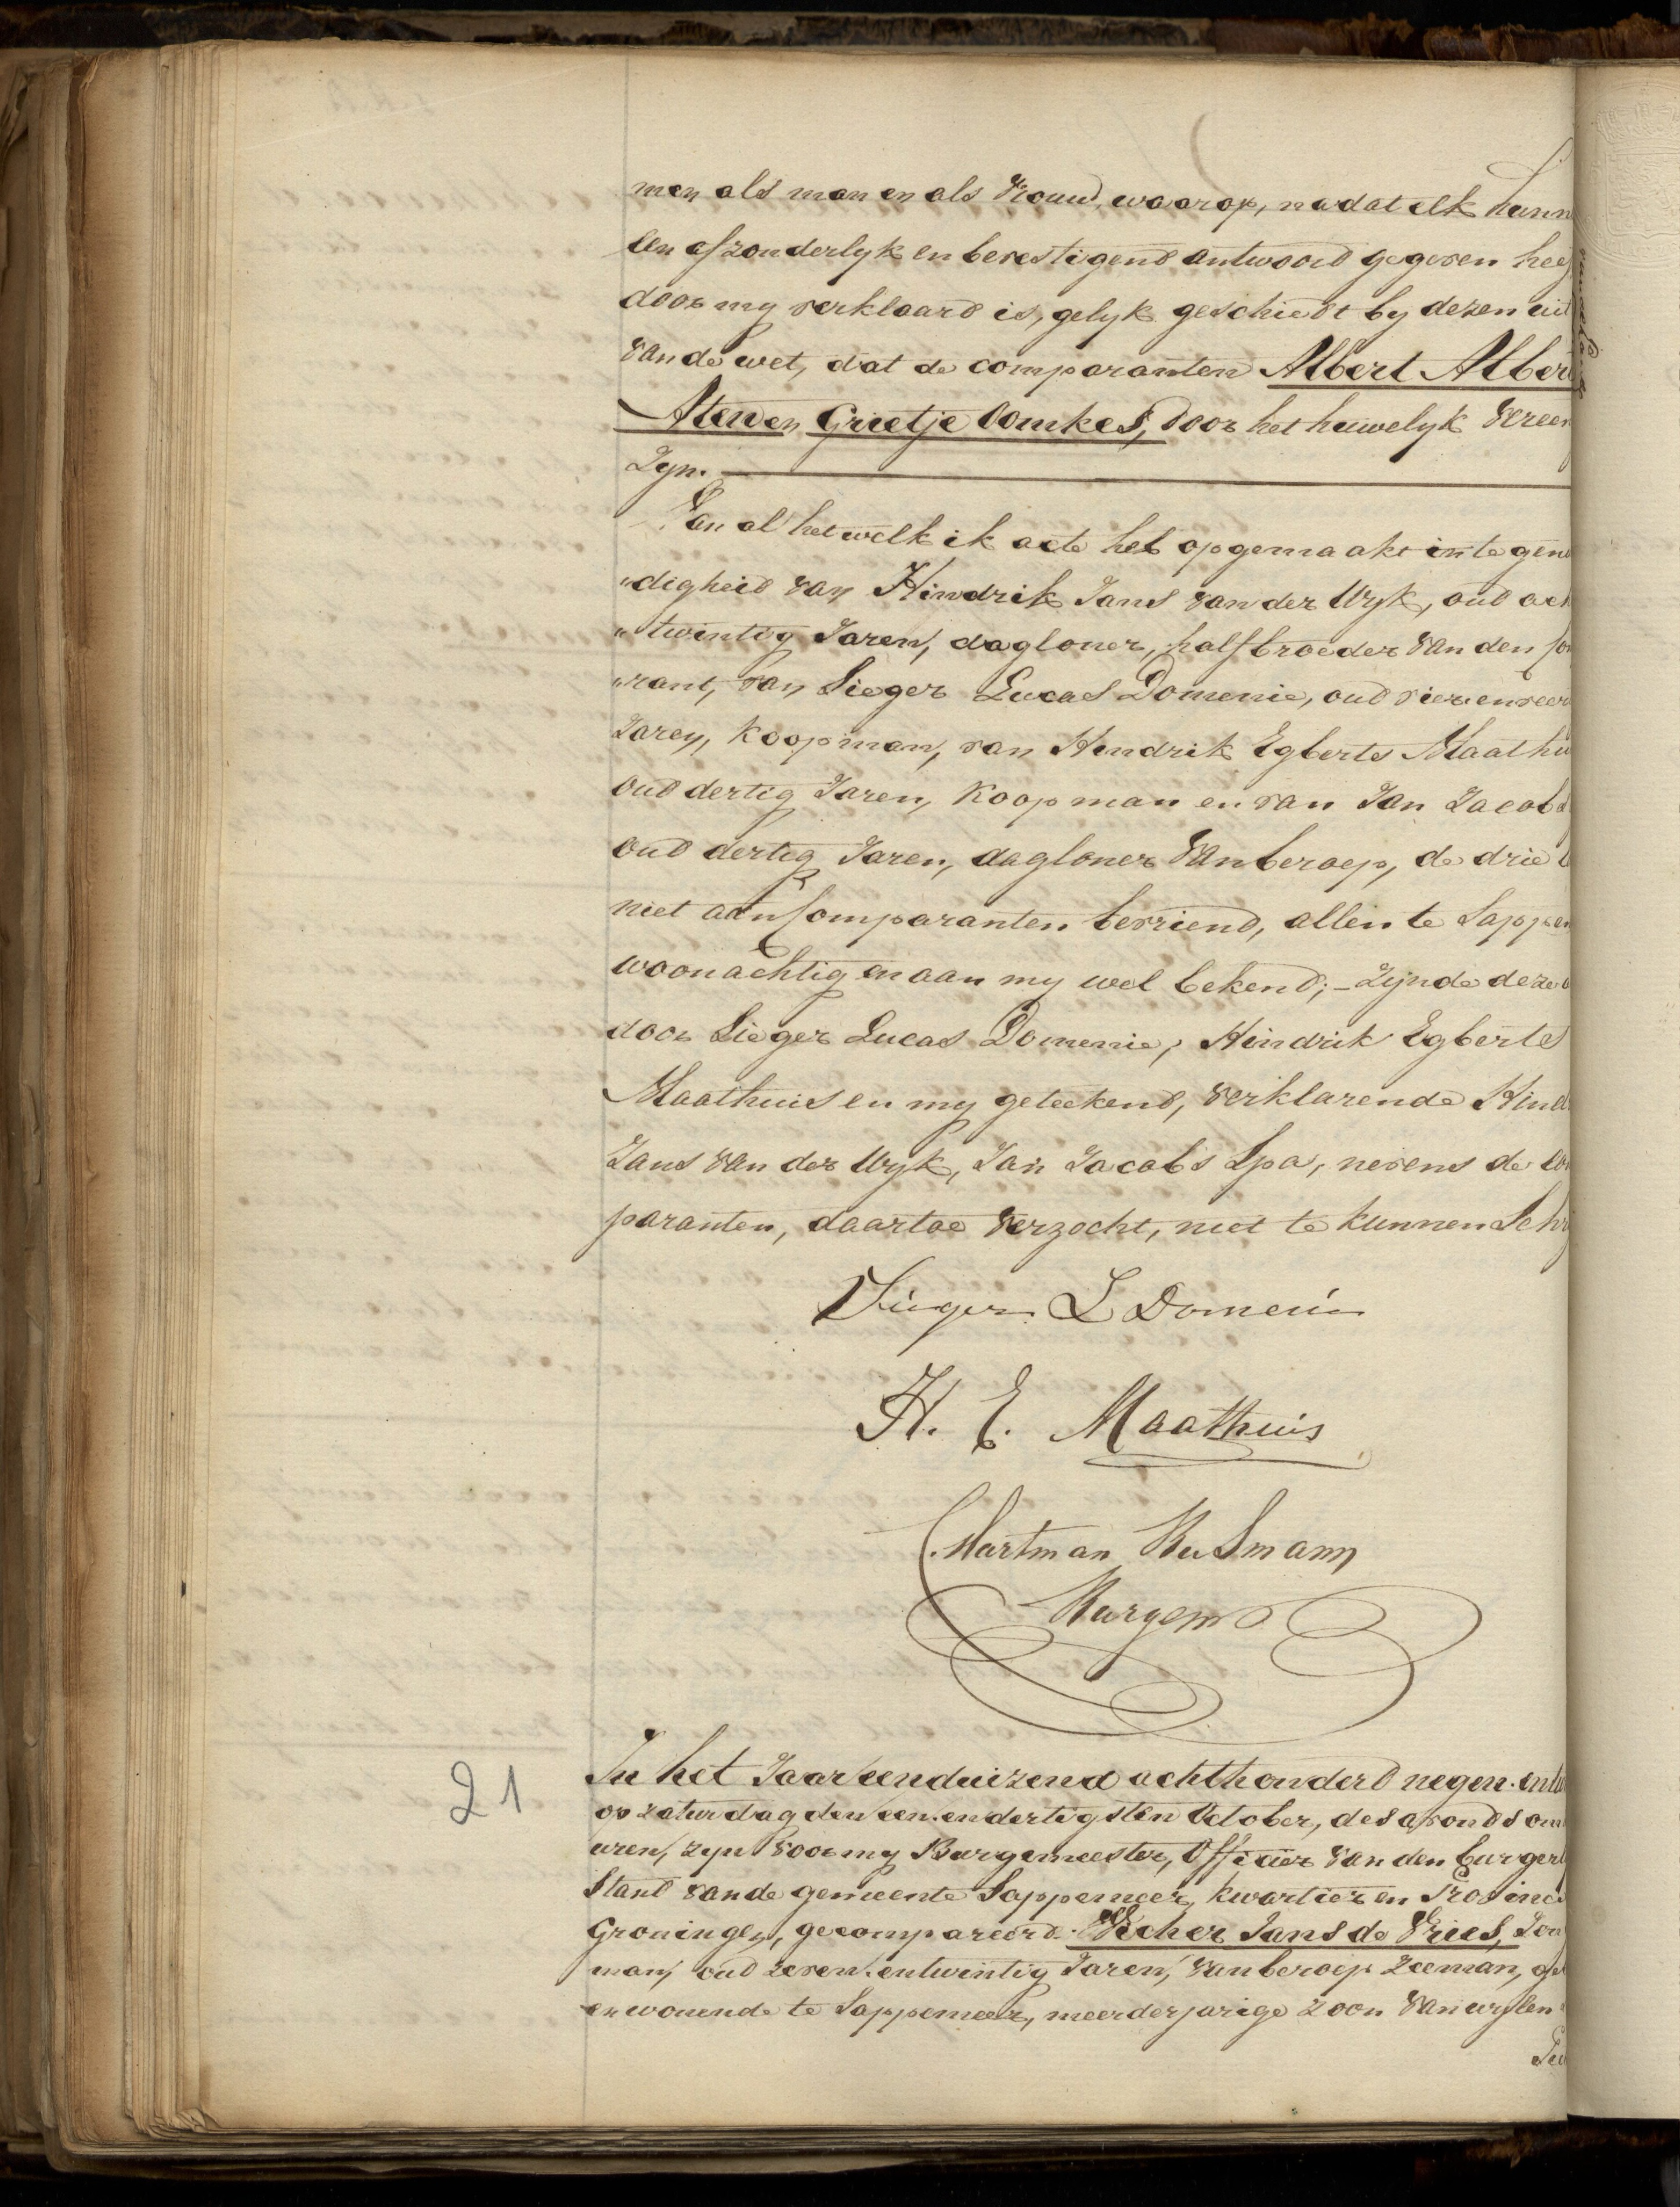 men als man en als Vrouw, waarop, nadat elk hunn
een afzonderlyk en bevestigend antwoord gegeven hee
door my verklaard is, gelyk geschiedt by dezen uit
van de wet, dat de comparanten Albert Alber
Aten en Grietje Oomkes, door het huwelyk Vereen
Zyn.
Van al het welk ik acte heb opgemaakt in tegen
"digheid van Hindrik Jans van der Wyk, oud ach
"twintig Jaren, dagloner, halfbroeder van den
"rant, van Sieger Lucas Domenie, oud vier en veer
Jaren, Koopman, van Hendrik Egberts Maathu
oud dertig Jaren, Koopman en van Jan Jacobs
oud dertig Jaren, dagloner van beroep, de drie
niet aan Comparanten bevriend, allen te Sappem
woonachtig en aan my wel bekend; – Zynde deze
door Sieger Lucas Domenie, Hindrik Egberts
Maathuis en my geteekend, verklarende Hind
Jans van der Wyk, Jan Jacobs Spa, nevens de Com
paranten, daartoe verzocht, niet te kunnen Schr
Sieger L Domenie
H. E. Maathuis
Hartman Busmann
Burgem
21
In het Jaar eenduizend achthonderd negen. en
op zaturdag den een. en dertigsten October, des avonds om
uren, zyn voor my Burgemeester, Officier van den burgerl
Stand van de gemeente Sappemeer, kwartier en Provincie
Groningen, gecompareerd. Wicher Jans de Vries, Jon
man, oud zeven. en twintig Jaren, van beroep Zeeman, ge
en wonende te Sappemeer, meerderjarige zoon van wylen